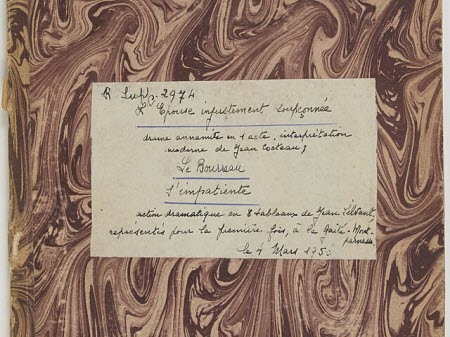 R Supp. 2974
L'Epouse injustement soupçonnée
drame annamite en 1 acte, interprétation
moderne de Jean Cocteau;
Le Bourreau
s'impatiente
action dramatique en 8 tableaux de Jean Silvant,
représentés pour la première fois, à la Gaîté-Mont-
parnasse
le 4 Mars 1950